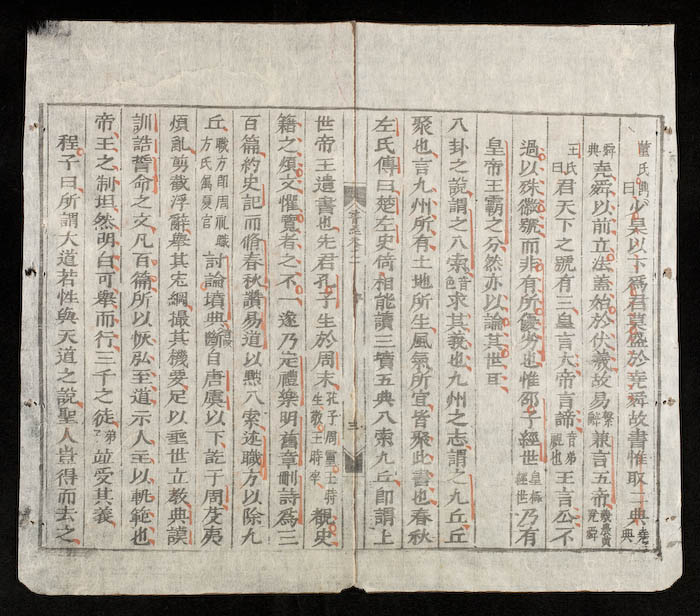 董氏鼎曰少皇以下爲君莫盛於堯舜故書惟取二典堯典
舜典堯舜以前立法蓋始於伏羲故易繫辭兼言五帝羲農黃堯舜
王氏曰君天下之號有三皇言大帝言諦音弟視也王言公不
過以殊徽號而非有所優劣也惟邵子經世皇極經世乃有
皇帝王霸之分然亦以論其世耳
八卦之說謂之八索音色求其義也九州之志謂之九丘丘
聚也言九州所有土地所生風氣所宜皆聚此書也春秋
左氏傳曰楚左史倚相能讀三墳五典八索九丘即謂上
書經卷之一
三
世帝王遺書也先君孔子生於周末孔子周靈王時生敬王時卒覩史
籍之煩文懼覽者之不一遂乃定禮樂明舊章刪詩爲三
百篇約史記而脩春秋讚易道以黜八索述職方以除九
丘職方即周礼職方氏屬夏官討論墳典斷自唐虞以下訖于周芟夷
煩亂剪截浮辭舉其宏綱撮其機要足以垂世立教典謨
訓誥誓命之文凡百篇所以恢弘至道示人主以軌範也
帝王之制坦然明白可舉而行三千之徒弟並受其義
程子曰所謂大道若性與天道之說聖人豈得而去之